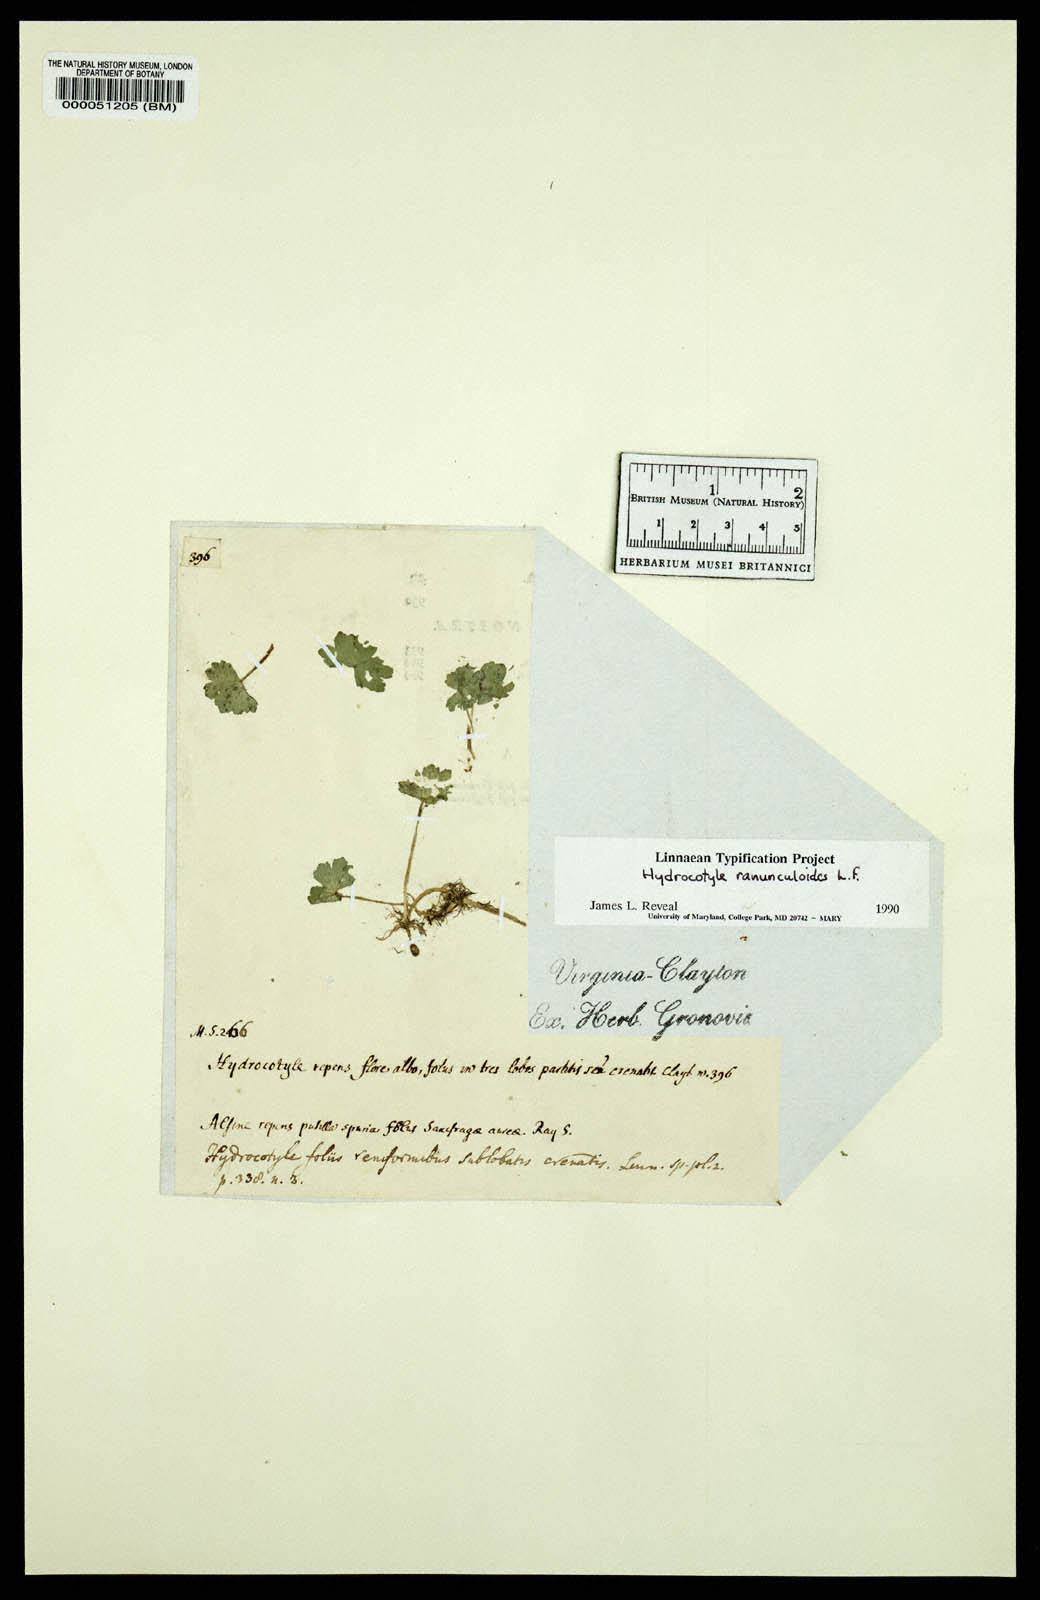 THE NATURAL HISTORY MUSEUM, LONDON
DEPARTMENT OF BOTANY
000051205 (BM)
1 2
BRITISH MUSEUM (NATURAL HISTORY)
1 2 3 4 5
HERBARIUM MUSEI BRITANNICI
396
Linnaean Typification Project
Hydrocotyle ranunculoides L.f.
James L. Reveal 1990
University of Maryland, College Park, MD 20742 – MARY
Virginia-Clayton
Ex. Herb. Gronovii
M.S. 266
Hydrocotyle repens flore albo, foliis in tres lobos partitis crenatis Clayt n. 396
Alsine repens pusilla spuria foliis Saxifragæ aureæ. Ray S.
Hydrocotyle foliis reniformibus sublobatis crenatis. Linn. sp. pl. 2.
p. 338. n. 3.